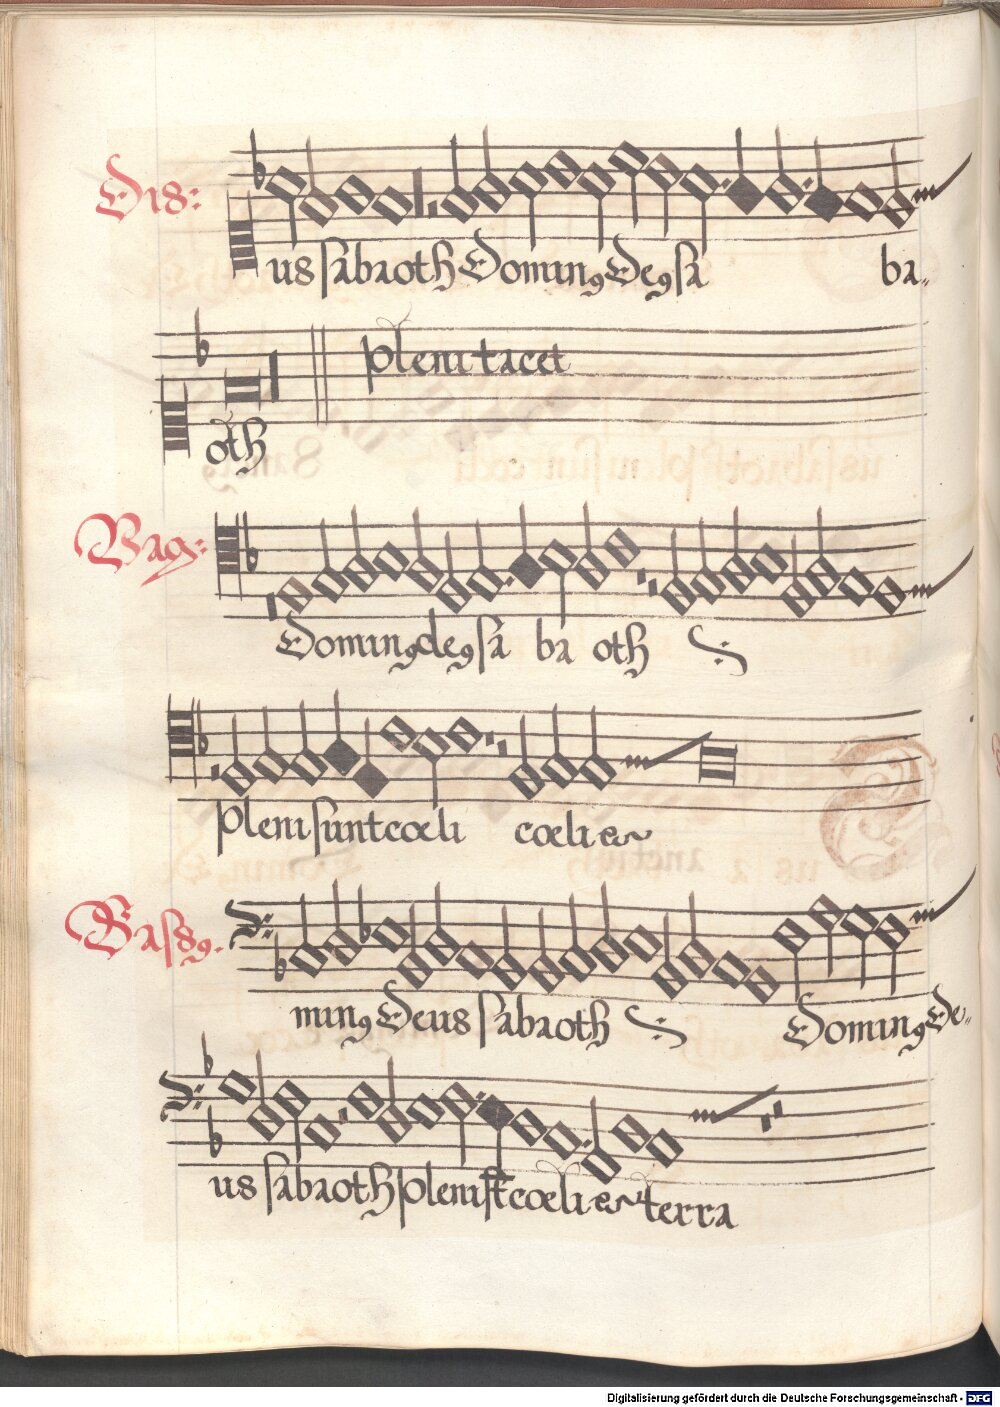 Dis:
us sabaoth Dominꝰ Deꝰ sa ba⸗
oth
pleni tacet
Vag:
Dominꝰ deꝰ sa ba oth
pleni sunt cœli cœli et
Bassꝰ.
minꝰ Deus sabaoth Dominꝰ De⸗
us sabaoth pleni st̄ cœli et terra
Digitalisierung gefördert durch die Deutsche Forschungsgemeinschaft - DFG